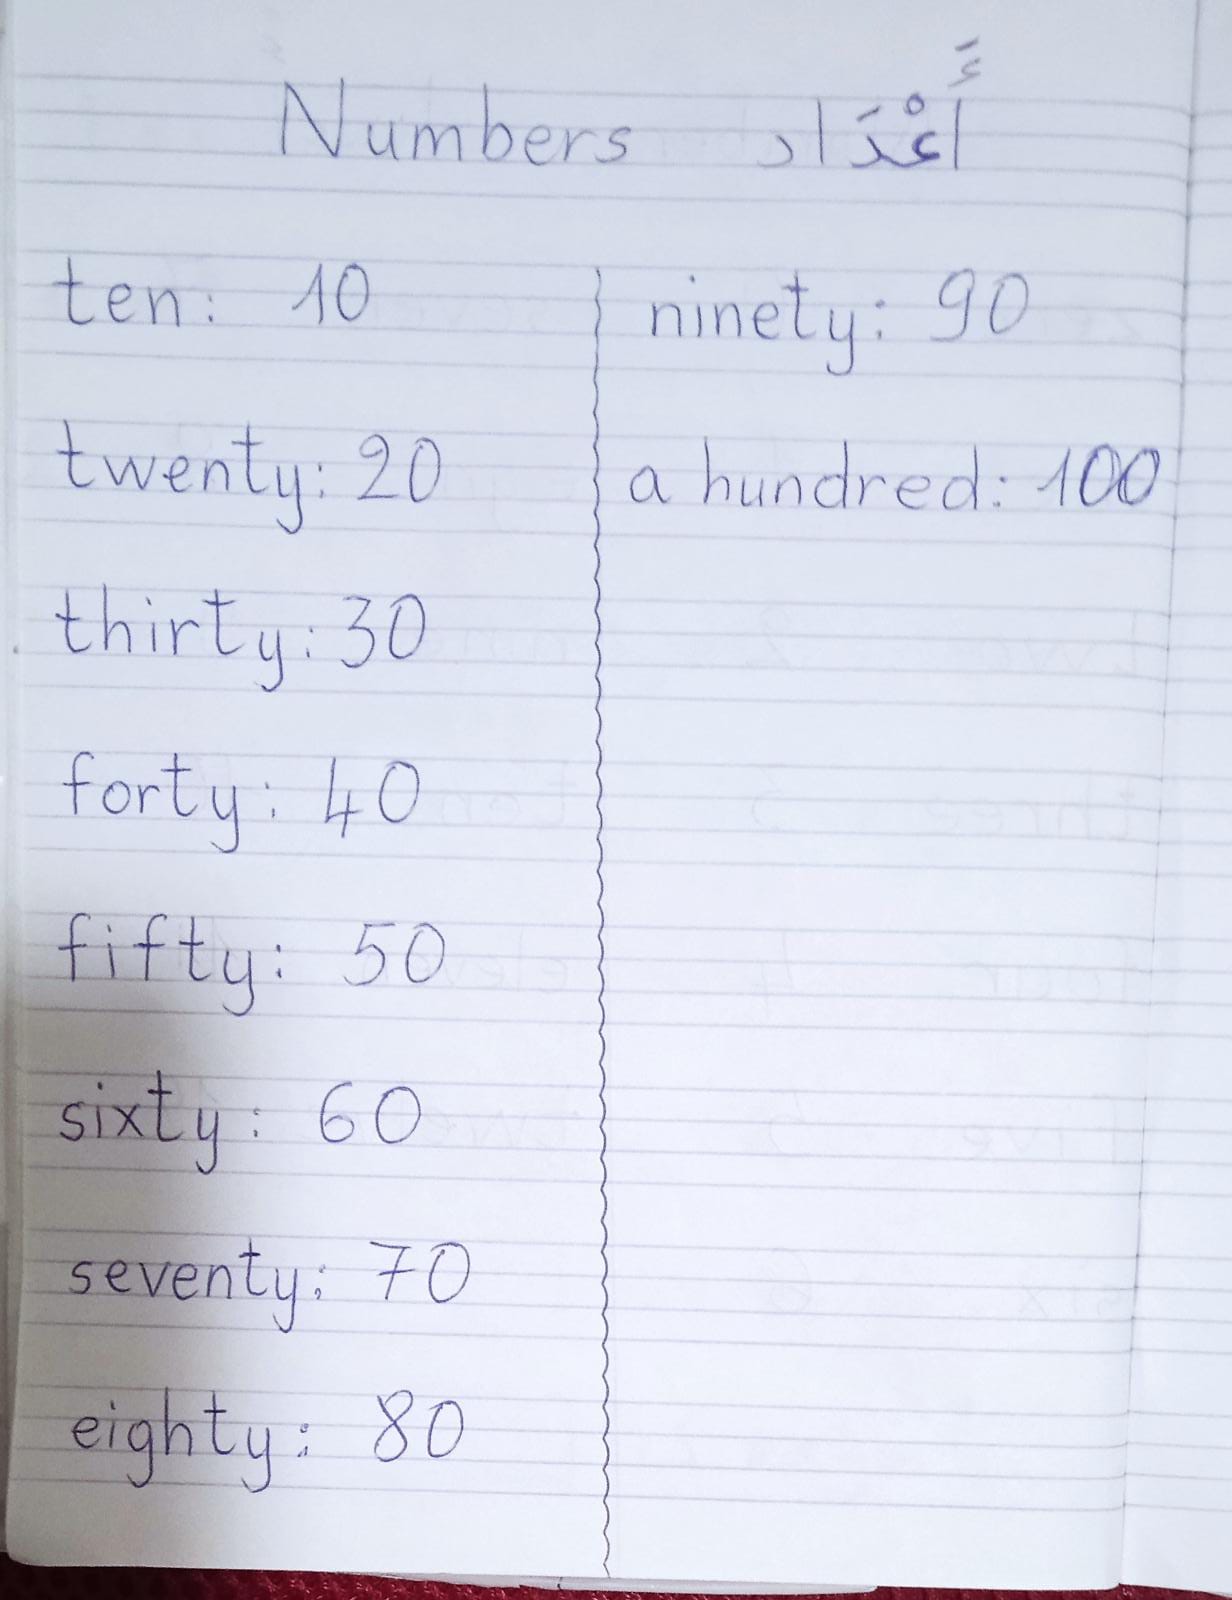 Numbers أَعْدَاد
ten: 10
twenty: 20
thirty: 30
forty: 40
fifty: 50
sixty: 60
seventy: 70
eighty: 80
ninety: 90
a hundred: 100